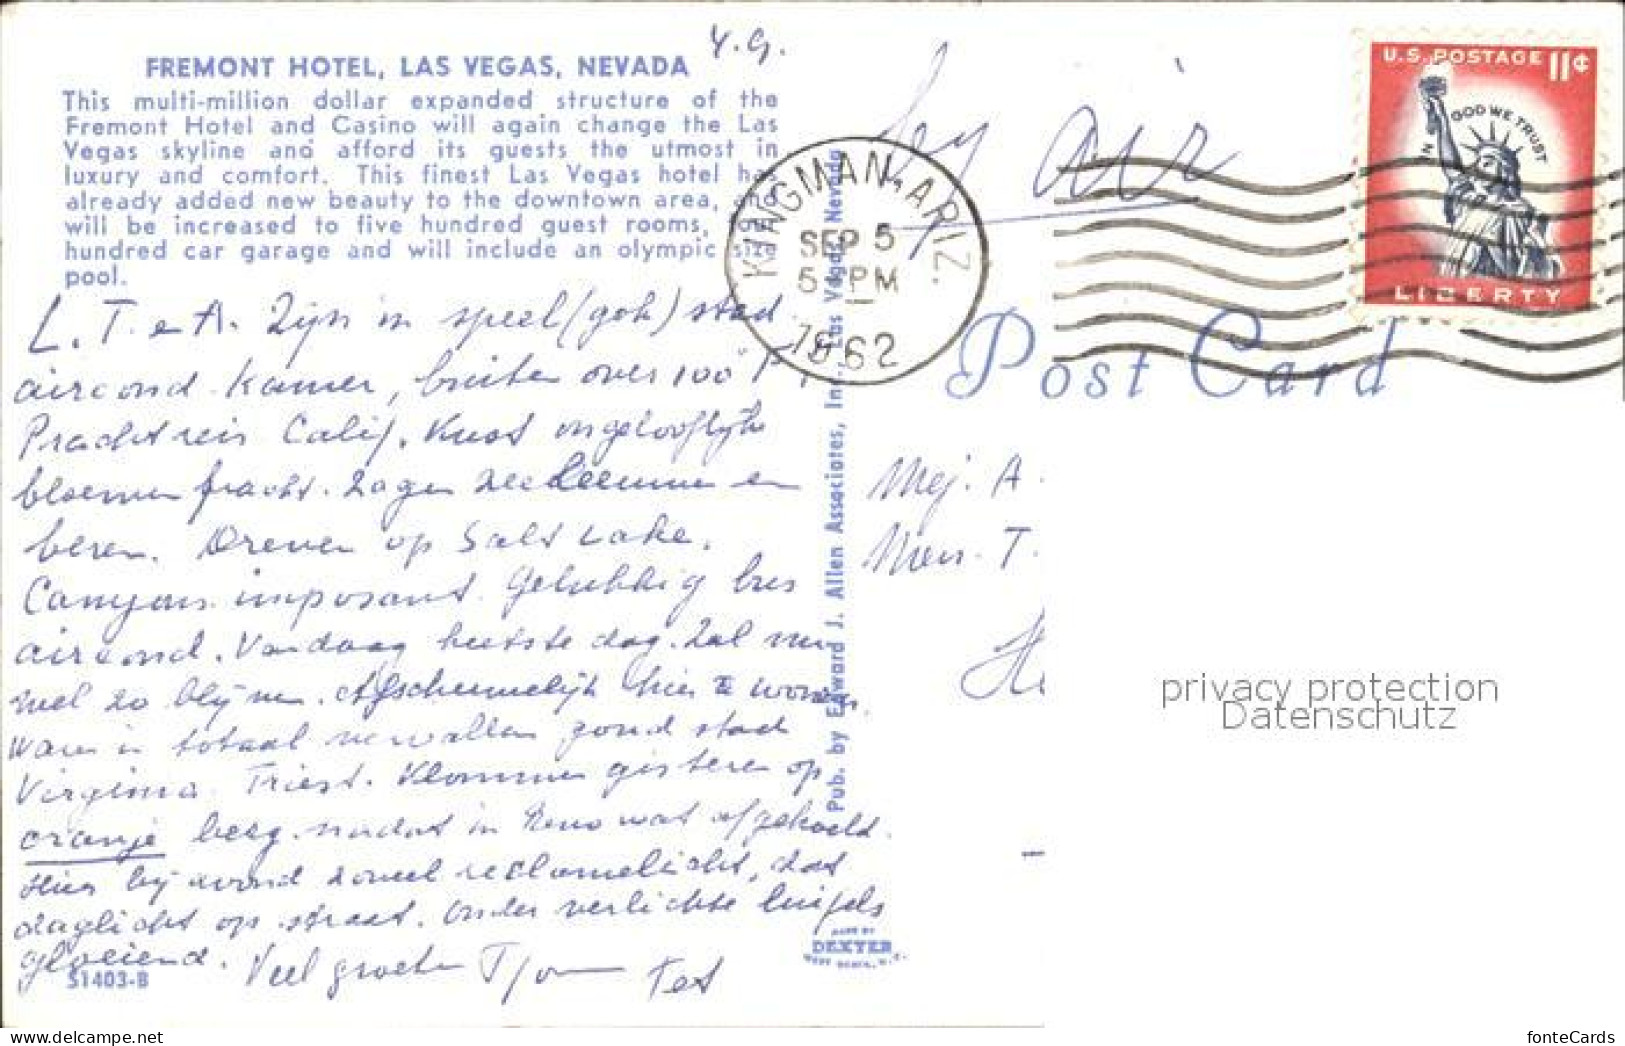 4.9.
FREMONT HOTEL, LAS VEGAS, NEVADA
This multi-million dollar expanded structure of the
Fremont Hotel and Casino will again change the Las
Vegas skyline and afford its guests the utmost in
luxury and comfort. This finest Las Vegas hotel has
already added new beauty to the downtown area, and
will be increased to five hundred guest rooms,
hundred car garage and will include an olympic size
pool.
L. T. e A. Zijn in speel (gok) stad
aircond. kamer, buiten over 100° F.
Prachtreis Calif. Kust ongelooflijke
bloemen pracht. Zagen zeeleeuwen en
beren. Dreven op Salt Lake.
Canyons imposant. Gelukkig bus
aircond. Vandaag heetste dag. Zal nu
wel zo blijven. Afschuwelijk hier te wonen.
Waren in totaal vervallen goud stad
Virginia. Triest. Klommen gisteren op
oranje berg. nadat in Reno was afgekoeld.
Hier bij avond zoveel reclamelicht, dat
daglicht op straat. Onder verlichte luifels
gloeiend. Veel groeten Tjom Tet
S1403-B
Pub. by Edward J. Allen Associates, Inc., Las Vegas, Nevada
MADE BY
DEXTER
WEST NYACK, N.Y.
by air
KINGMAN, ARIZ.
SEP 5
5 PM
1962
U.S. POSTAGE 11¢
IN GOD WE TRUST
LIBERTY
Post Card
Mej. A.
Mevr. T.
He
privacy protection
Datenschutz
www.delcampe.net
fonteCards